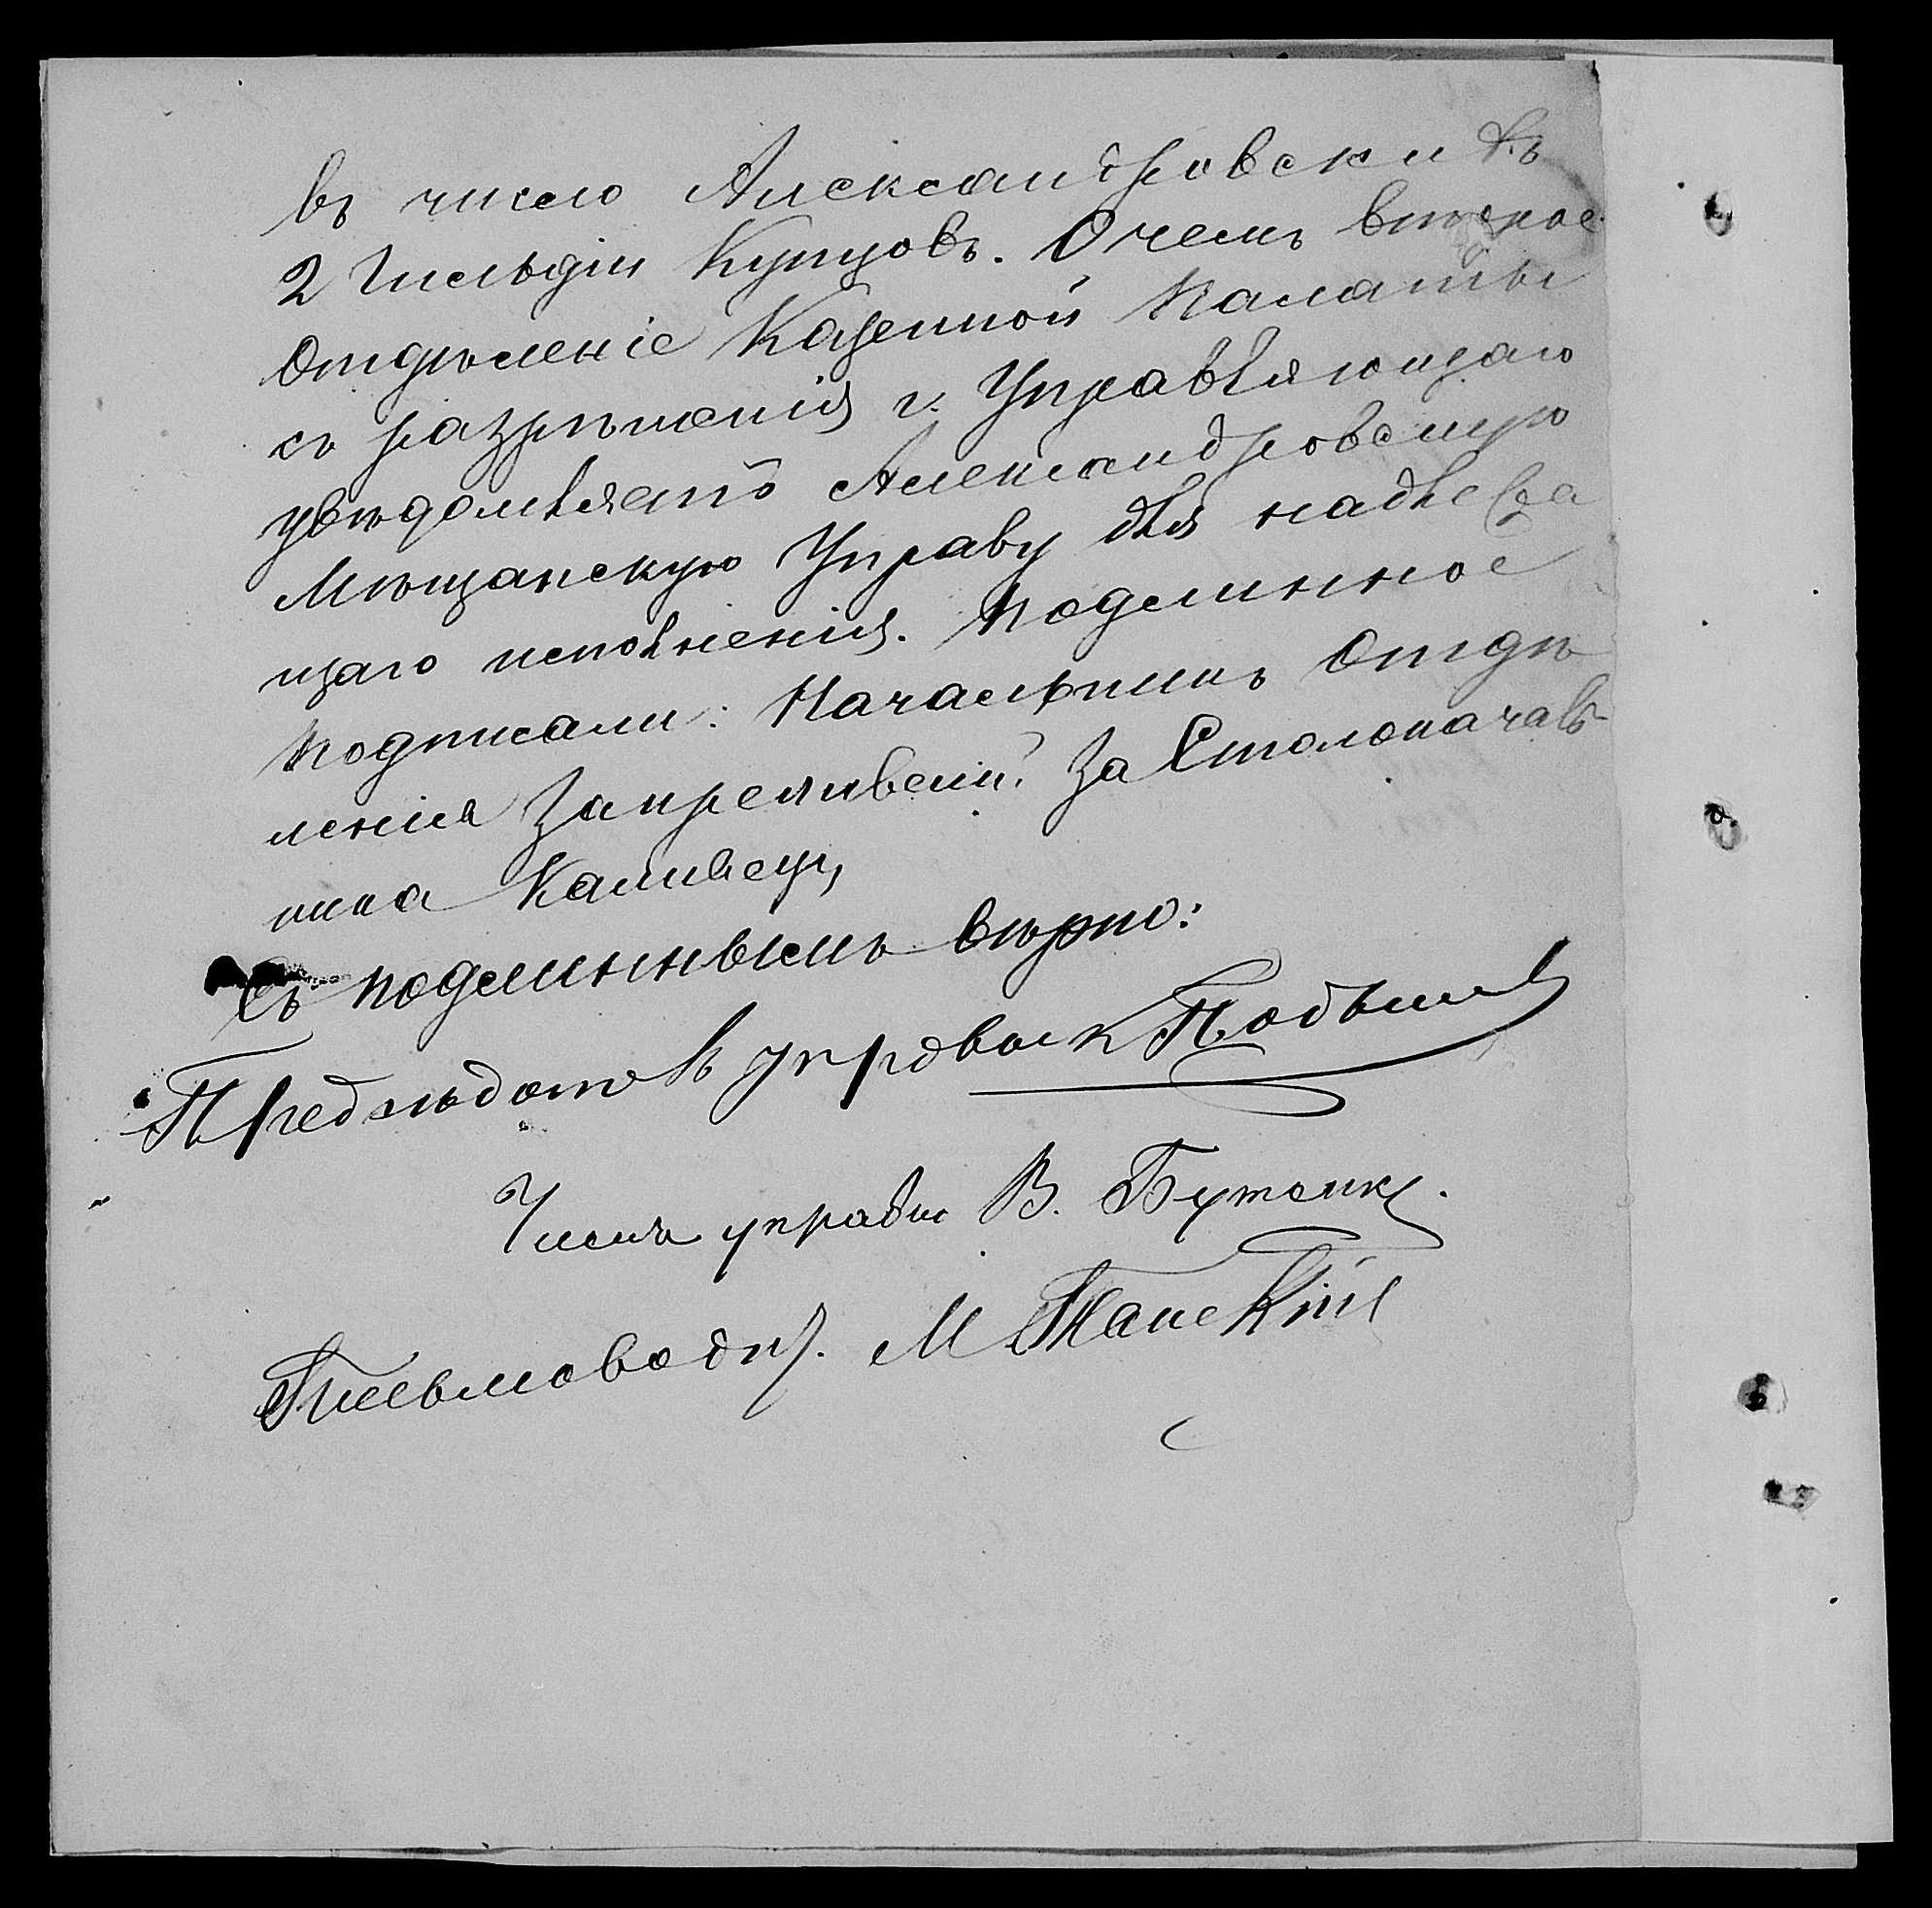 въ число Александровскихъ
2 Гильдіи Купцовъ. О чемъ второе
Отдѣленіе Казенной Палаты
съ разрѣшенія г. Управляющаго
увѣдомляетъ Александровскую
Мѣщанскую Управу для надлежа
щаго исполненія. Подлинное
подписали: Начальникъ Отдѣ
ленія За Столоначаль
ника
Съ подлиннымъ вѣрно:
Предсѣдатель управы
Членъ управы В. Бутенко.
Письмоводит. М